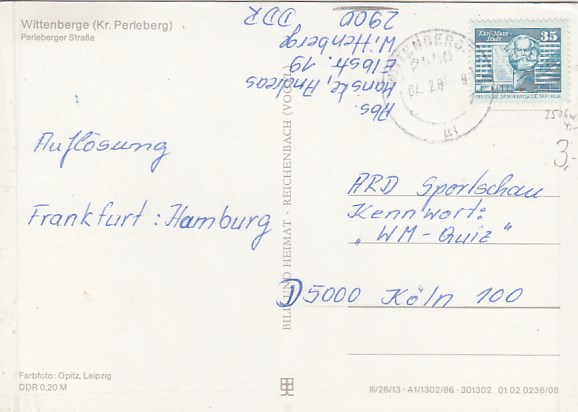 Wittenberge (Kr. Perleberg)
Perleberger Straße
Abs.
Hanske, Andreas
Elbstr. 19
Wittenberge
2900
DDR
Karl-Marx-
Stadt
35
DEUTSCHE DEMOKRATISCHE REPUBLIK
3,-
Auflösung
Frankfurt : Hamburg
ARD Sportschau
Kennwort:
„WM-Quiz"
D 5000 Köln 100
BILD UND HEIMAT · REICHENBACH (VOGTL)
Farbfoto: Opitz, Leipzig
DDR 0,20 M
III/26/13 · A1/1302/86 · 301302 01 02 0236/08